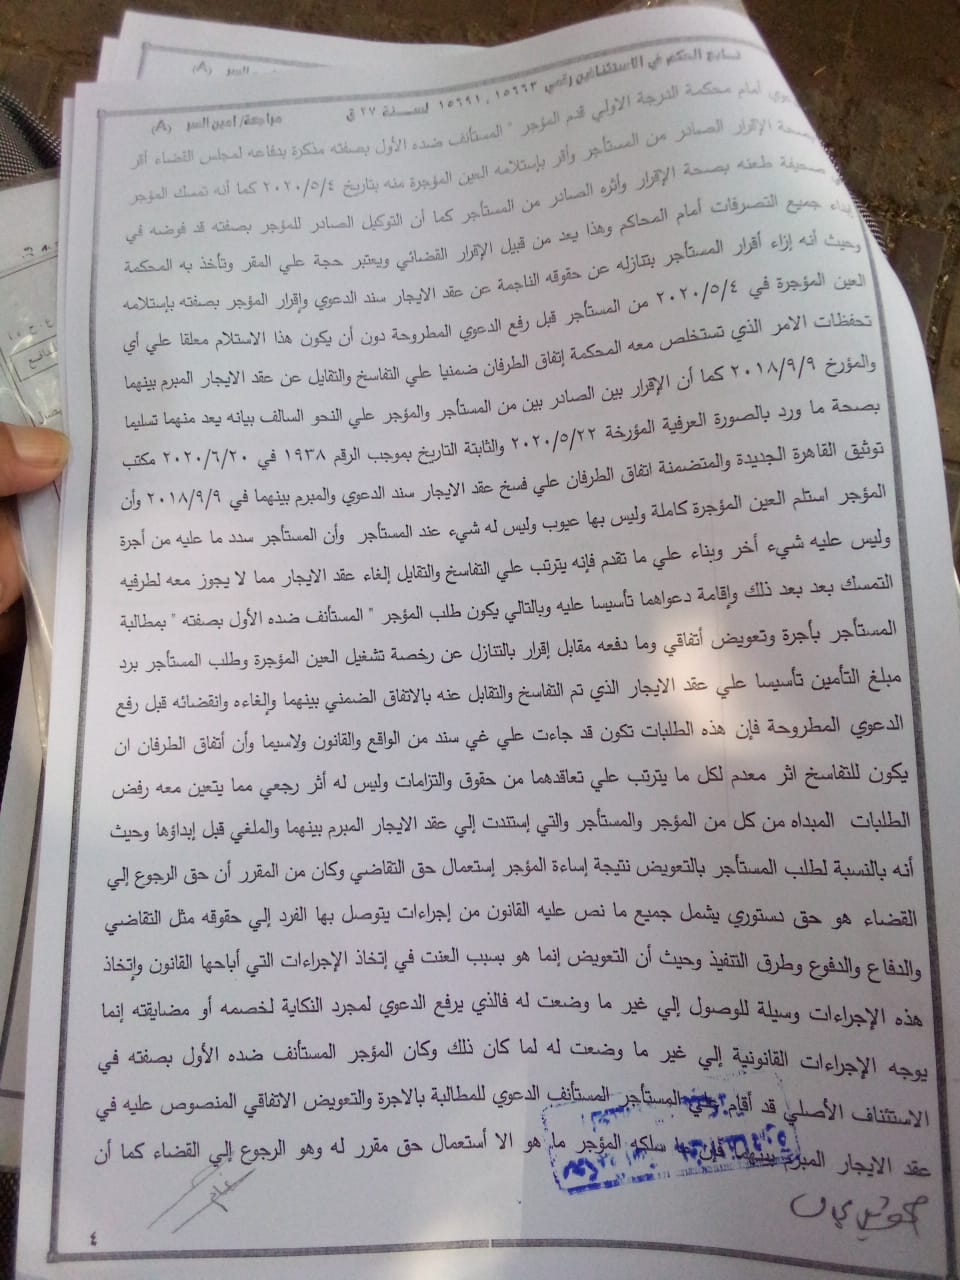 تابع الحكم في الاستئنافين رقمي ١٥٦٦٣ ، ١٥٦٩١ لسنة ٢٧ ق
مراجعة/ امين السر (A)
أمام محكمة الدرجة الاولي قدم المؤجر " المستأنف ضده الأول بصفته مذكرة بدفاعه لمجلس القضاء أقر
بصحة الإقرار الصادر من المستأجر وأقر بإستلامه العين المؤجرة منه بتاريخ ٢٠٢٠/٥/٤ كما أنه تمسك المؤجر
صحيفة طعنه بصحة الإقرار وأثره الصادر من المستأجر كما أن التوكيل الصادر للمؤجر بصفته قد فوضه في
إبداء جميع التصرفات أمام المحاكم وهذا يعد من قبيل الإقرار القضائي ويعتبر حجة علي المقر وتأخذ به المحكمة
وحيث أنه إزاء أقرار المستأجر بتنازله عن حقوقه الناجمة عن عقد الايجار سند الدعوي وإقرار المؤجر بصفته بإستلامه
العين المؤجرة في ٢٠٢٠/٥/٤ من المستأجر قبل رفع الدعوي المطروحة دون أن يكون هذا الاستلام معلقا علي أي
تحفظات الامر الذي تستخلص معه المحكمة إتفاق الطرفان ضمنيا علي التفاسخ والتقايل عن عقد الايجار المبرم بينهما
والمؤرخ ٢٠١٨/٩/٩ كما أن الإقرار بين الصادر بين من المستأجر والمؤجر علي النحو السالف بيانه يعد منهما تسليما
بصحة ما ورد بالصورة العرفية المؤرخة ٢٠٢٠/٥/٢٢ والثابتة التاريخ بموجب الرقم ١٩٣٨ في ٢٠٢٠/٦/٢٠ مكتب
توثيق القاهرة الجديدة والمتضمنة اتفاق الطرفان علي فسخ عقد الايجار سند الدعوي والمبرم بينهما في ٢٠١٨/٩/٩ وأن
المؤجر استلم العين المؤجرة كاملة وليس بها عيوب وليس له شيء عند المستأجر وأن المستأجر سدد ما عليه من أجرة
وليس عليه شيء أخر وبناء علي ما تقدم فإنه يترتب علي التفاسخ والتقايل إلغاء عقد الايجار مما لا يجوز معه لطرفيه
التمسك بعد بعد ذلك وإقامة دعواهما تأسيسا عليه وبالتالي يكون طلب المؤجر " المستأنف ضده الأول بصفته " بمطالبة
المستأجر بأجرة وتعويض أتفاقي وما دفعه مقابل إقرار بالتنازل عن رخصة تشغيل العين المؤجرة وطلب المستأجر برد
مبلغ التأمين تأسيسا علي عقد الايجار الذي تم التفاسخ والتقابل عنه بالاتفاق الضمني بينهما وإلغاءه وانقضائه قبل رفع
الدعوي المطروحة فإن هذه الطلبات تكون قد جاءت علي غي سند من الواقع والقانون ولاسيما وأن أتفاق الطرفان ان
يكون للتفاسخ اثر معدم لكل ما يترتب علي تعاقدهما من حقوق والتزامات وليس له أثر رجعي مما يتعين معه رفض
الطلبات المبداه من كل من المؤجر والمستأجر والتي إستندت إلي عقد الايجار المبرم بينهما والملغي قبل إبداؤها وحيث
أنه بالنسبة لطلب المستأجر بالتعويض نتيجة إساءة المؤجر إستعمال حق التقاضي وكان من المقرر أن حق الرجوع إلي
القضاء هو حق دستوري يشمل جميع ما نص عليه القانون من إجراءات يتوصل بها الفرد إلي حقوقه مثل التقاضي
والدفاع والدفوع وطرق التنفيذ وحيث أن التعويض إنما هو بسبب العنت في إتخاذ الإجراءات التي أباحها القانون وإتخاذ
هذه الإجراءات وسيلة للوصول إلي غير ما وضعت له فالذي يرفع الدعوي لمجرد النكاية لخصمه أو مضايقته إنما
يوجه الإجراءات القانونية إلي غير ما وضعت له لما كان ذلك وكان المؤجر المستأنف ضده الأول بصفته في
الاستئناف الأصلي قد أقام علي المستأجر المستأنف الدعوي للمطالبة بالاجرة والتعويض الاتفاقي المنصوص عليه في
عقد الايجار المبرم بينهما فإن ما سلكه المؤجر ما هو الا أستعمال حق مقرر له وهو الرجوع إلي القضاء كما أن
٤